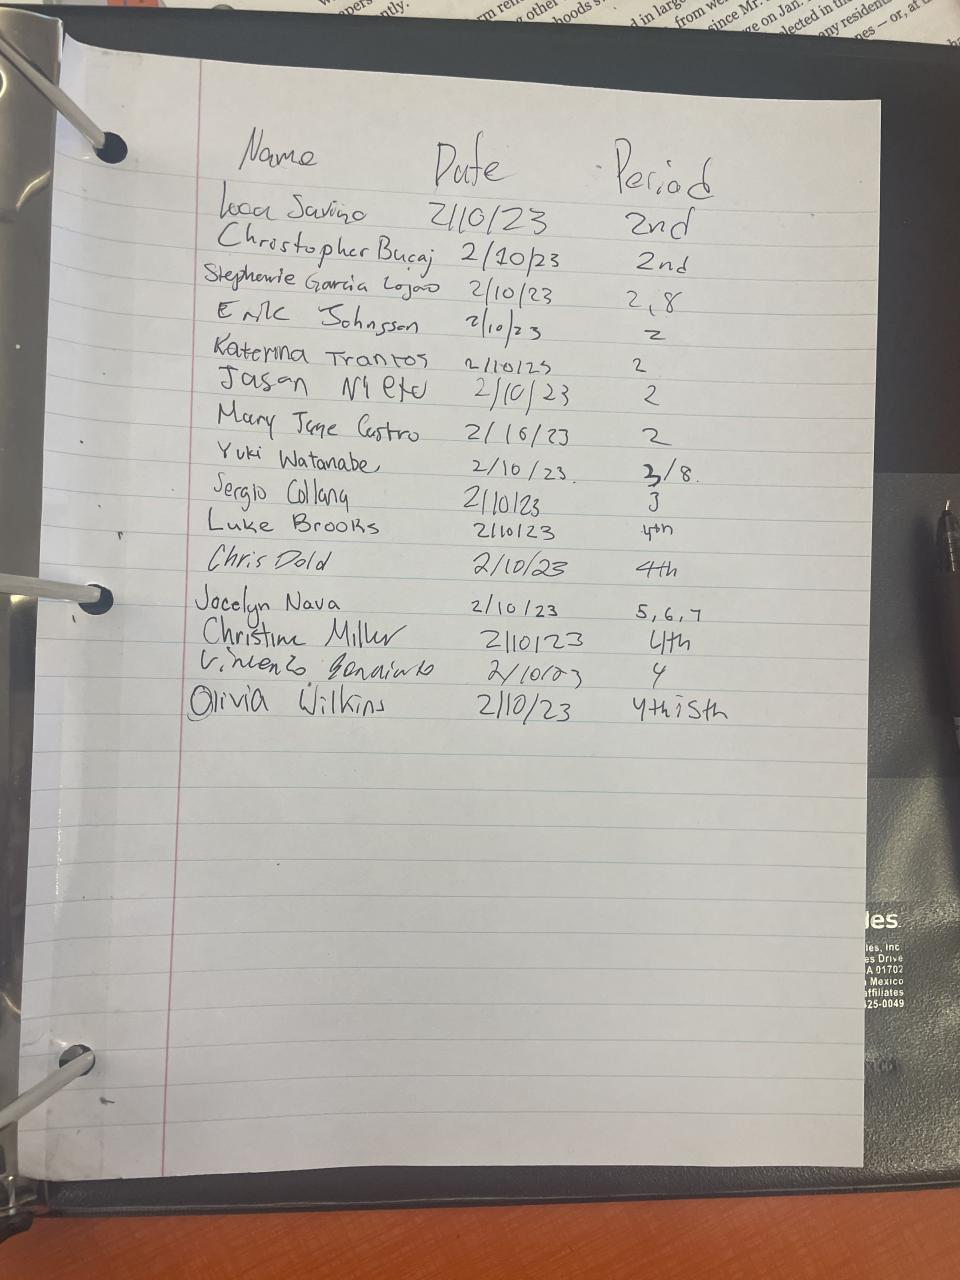 ntly.
other
hoods
in larg
from we
since Mr.
ge on Jan.
lected in the
any resident
nes — or, at
Name Date Period
Savino 2/10/23 2nd
Christopher Bucaj 2/10/23 2nd
Stephanie Garcia Lojano 2/10/23 2,8
Erik Johnsson 2/10/23 2
Katerina Trantos 2/10/23 2
Jason Nieto 2/10/23 2
Mary Jane Castro 2/16/23 2
Yuki Watanabe 2/10/23. 3/8.
Sergio Collang 2/10/23 3
Luke Brooks 2/10/23 4th
Chris Dold 2/10/23 4th
Jocelyn Nava 2/10/23 5,6,7
Christine Miller 2/10/23 4th
Vincenzo 2/10/23 4
Olivia Wilkins 2/10/23 4th i 5th
les
les, Inc
es Drive
A 01702
Mexico
affiliates
25-0049